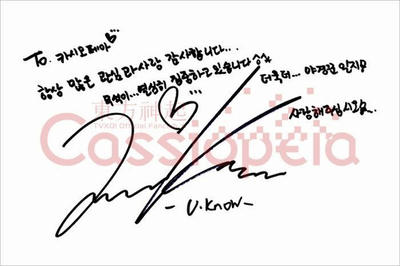 To. 카시오페아
항상 많은 관심과 사랑 감사합니다...
무석이... 열심히 집중하고 있습니다
더욱더... 야경꾼 일지
사랑해주십시오.
東方神起
TVXQ! Official Fanclub
Cassiopeia
- U.Know -